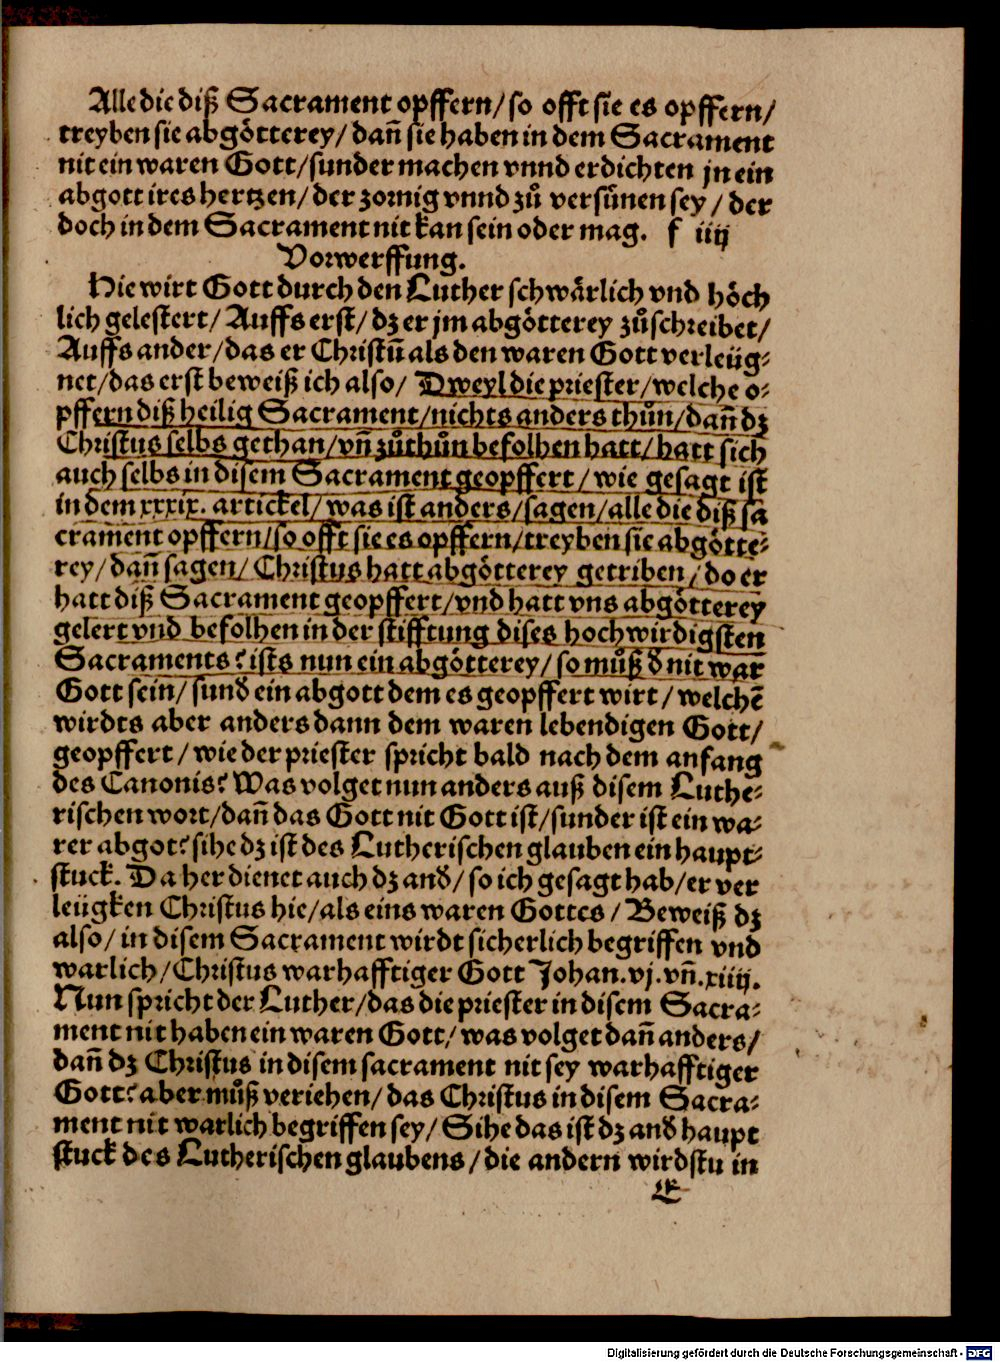 Alle die diß Sacrament opffern/ so offt sie es opffern/
treyben sie abgötterey/ dañ sie haben in dem Sacrament
nit ein waren Gott/ sunder machen vnnd erdichten jn ein
abgott ires hertzen/ der zornig vnnd zů versünen sey/ der
doch in dem Sacrament nit kan sein oder mag. f iiij
Vorwerffung.
Hie wirt Gott durch den Luther schwärlich vnd höch
lich gelestert/ Auffs erst/ dz er jm abgötterey zůschreibet/
Auffs ander/ das er Christū als den waren Gott verleüg⸗
net/ das erst beweiß ich also/ Dweyl die priester/ welche o⸗
pffern diß heilig Sacrament/ nichts anders thůn/ dañ dz
Christus selbs gethan/ vñ zůthůn befolhen hatt/ hatt sich
auch selbs in disem Sacrament geopffert/ wie gesagt ist
in dem xxxix. artickel/ was ist anders/ sagen/ alle die diß sa
crament opffern/ so offt sie es opffern/ treyben sie abgötte⸗
rey/ dañ sagen/ Christus hatt abgötterey getriben/ do er
hatt diß Sacrament geopffert/ vnd hatt vns abgötterey
gelert vnd befolhen in der stifftung dises hochwirdigsten
Sacraments? ists nun ein abgötterey/ so můß d nit war
Gott sein/ sund ein abgott dem es geopffert wirt/ welchē
wirdts aber anders dann dem waren lebendigen Gott/
geopffert/ wie der priester spricht bald nach dem anfang
des Canonis? Was volget nun anders auß disem Luthe⸗
rischen wort/ dañ das Gott nit Gott ist/ sunder ist ein wa⸗
rer abgot? sihe dz ist des Lutherischen glauben ein haupt⸗
stuck. Da her dienet auch dz and/ so ich gesagt hab/ er ver
leügken Christus hie/ als eins waren Gottes/ Beweiß dz
also/ in disem Sacrament wirdt sicherlich begriffen vnd
warlich/ Christus warhafftiger Gott Johan. vj. vñ. xiiij.
Nun spricht der Luther/ das die priester in disem Sacra⸗
ment nit haben ein waren Gott/ was volget dañ anders/
dañ dz Christus in disem sacrament nit sey warhafftiger
Gott? aber můß veriehen/ das Christus in disem Sacra⸗
ment nit warlich begriffen sey/ Sihe das ist dz and haupt
stuck des Lutherischen glaubens/ die andern wirdstu in
Digitalisierung gefördert durch die Deutsche Forschungsgemeinschaft - DFG